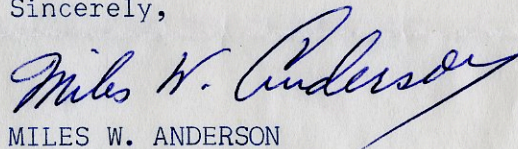 Sincerely,
Miles W. Anderson
MILES W. ANDERSON